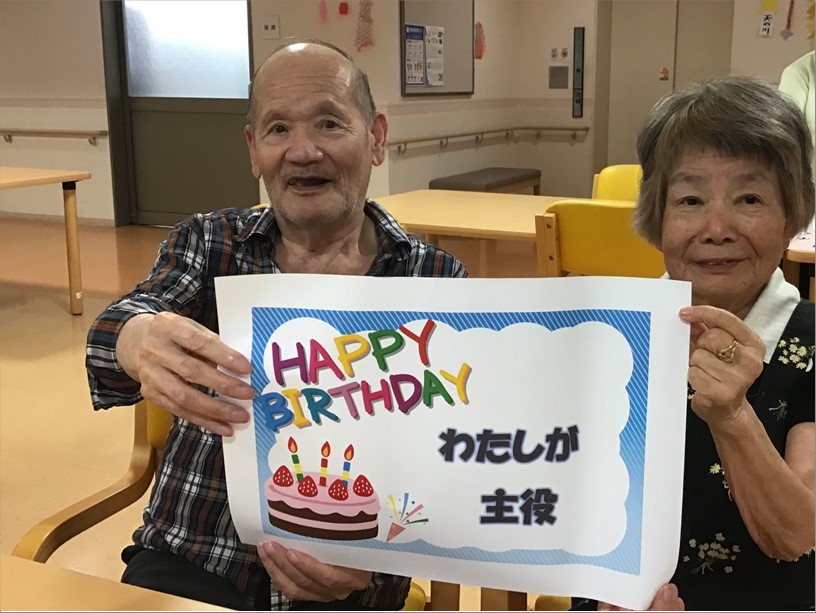 HAPPY
BIRTHDAY
わたしが
主役
天の川